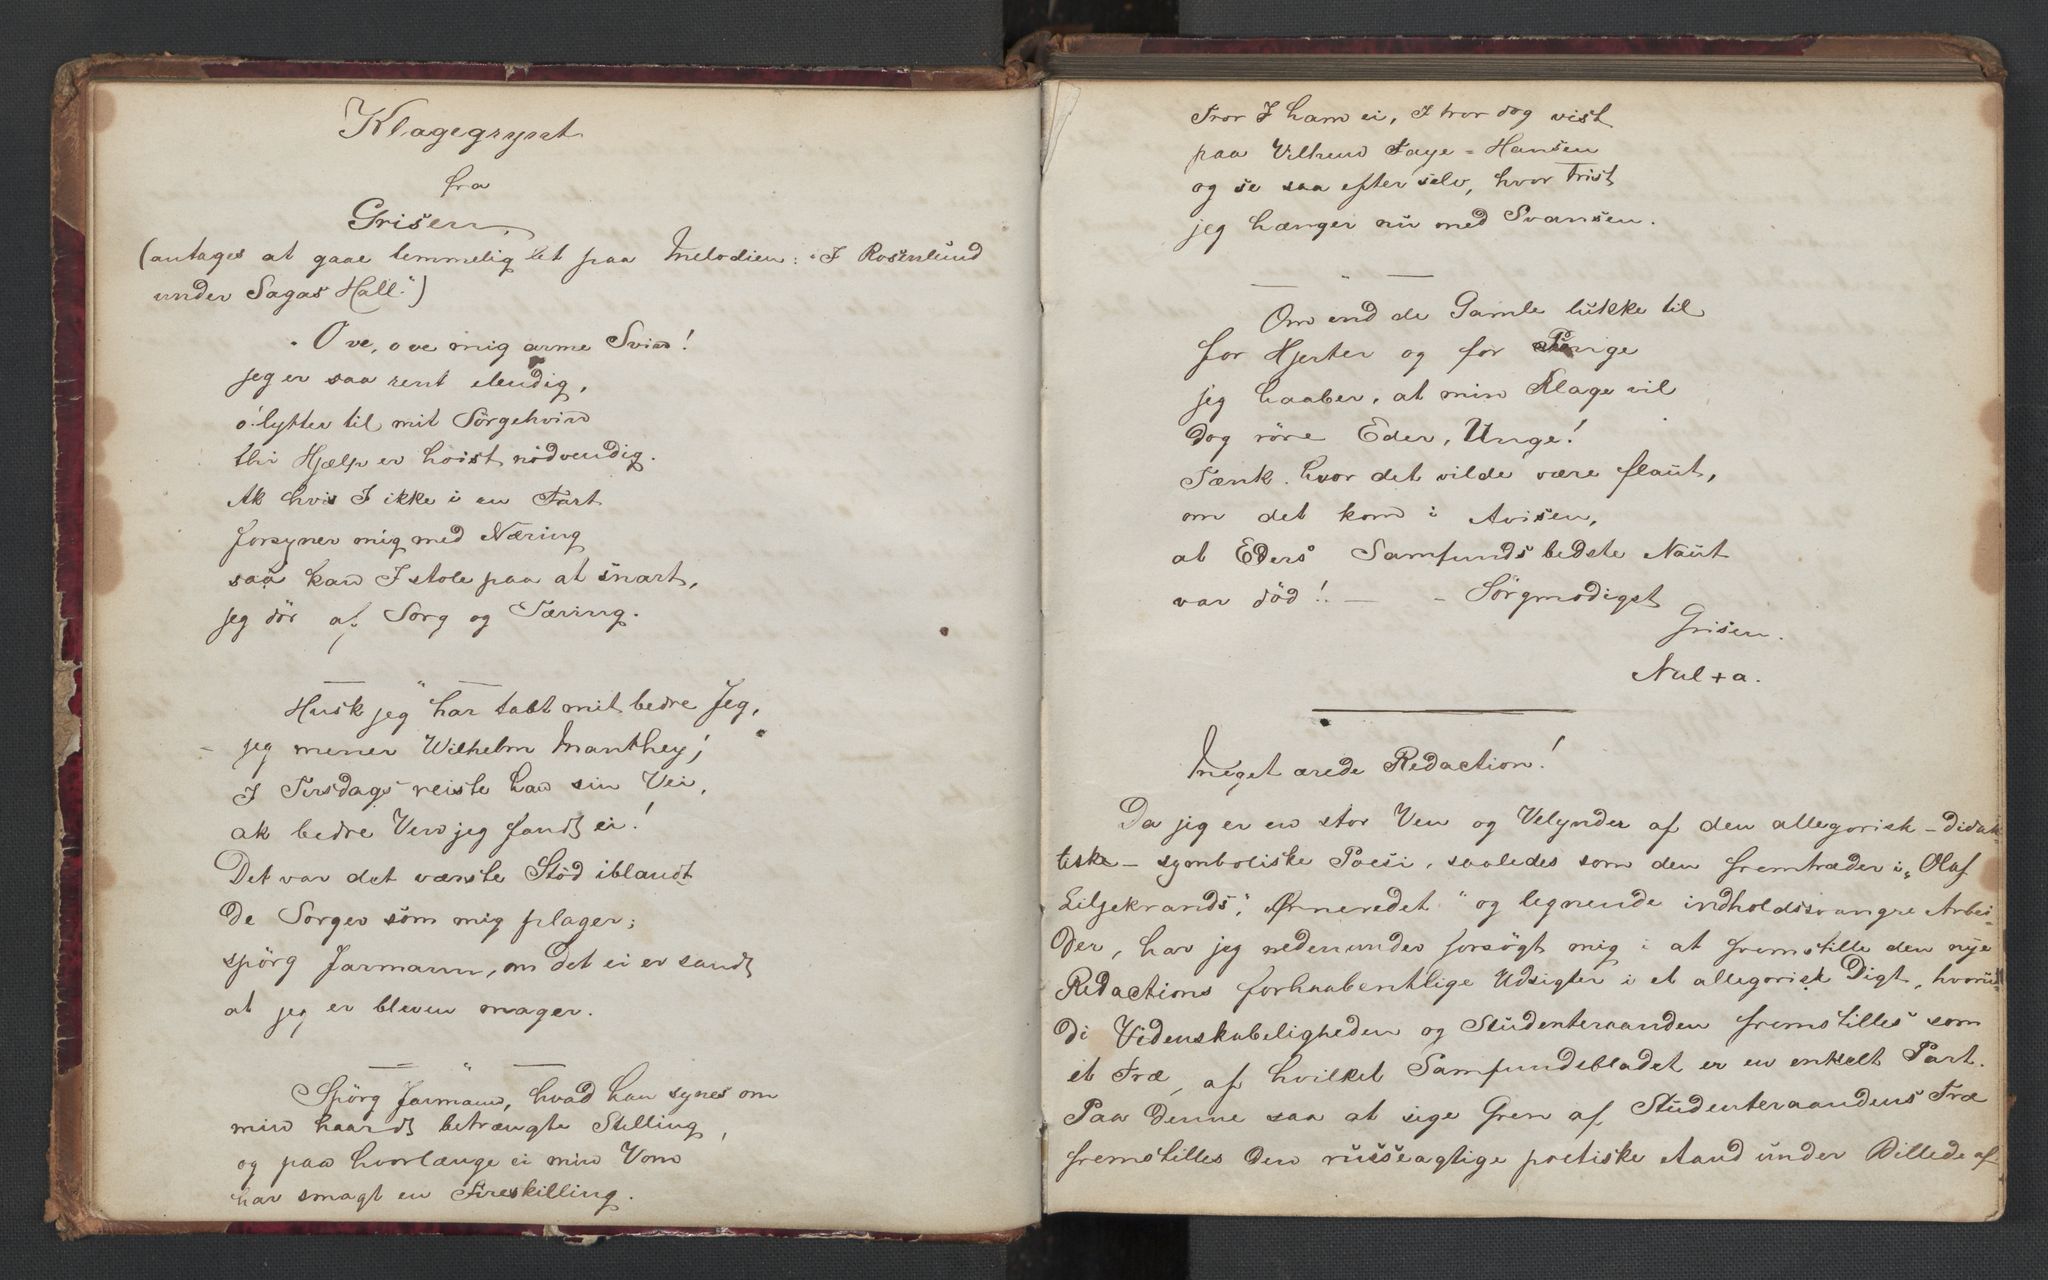 Klagegrynt
fra
Grisen,
(antages at gaae temmelig let paa Melodien: "I Rosenlund
under Sagas Hall.")
O ve, o ve mig arme Svin!
jeg er saa rent elendig,
o! lytter til mit Sörgehvin
thi Hjælp er hoist nödvendig.
Ak hvis I ikke i en Fart
forsyner mig med Næring
saa kan I stole paa at snart,
jeg dör af Sorg og Tæring.
Husk jeg har tabt mit bedre Jeg,
jeg mener Wilhelm Manthey;
I Tirsdags reiste han sin Vei,
ak bedre Ven jeg fandt ei!
Det var det værste Stöd iblandt
De Sorger som mig plager;
spörg Jarmann, om det ei er sandt
at jeg er bleven mager.
Spörg Jarmann, hvad han synes om
min haardt betrængte Stilling,
og paa hvorlænge ei min Vom
har smagt en Fireskilling.
Tror I ham ei, I tror dog vist
paa Vilhem Faye-Hansen
og se saa efter selv, hvor trist
jeg hænger nu med Svansen.
Om end de Gamle lukke til
for Hjerter og for Punge
jeg haaber, at min Klage vil
dog röre Eder, Unge!
Tænk. hvor det vilde være flaut,
om det kom i Avisen,
at Eders Samfunds bedste Naut
var död!. — - Sörgmodigst
Grisen.
Nul + a.
Meget ærede Redaction!
Da jeg er en stor Ven og Velynder af den allegorisk-didak-
tiske-symboliske Poesi, saaledes som den fremtræder i "Olaf
Liljekrands", Ørneredet" og lignende indholdssvangre Arbei-
der, har jeg nedenunder forsögt mig i at fremstille den nye
Redactions forhaabentlige Udsigter i et allegorisk Digt, hvori
di Videnskabeligheden og Studenteraanden fremstilles som
et Træ, af hvilket Samfundsbladet er en enkelt Part.
Paa denne saa at sige Gren af Studenteraandens Træ
fremstilles den russeagtige poetiske Aand under Billede af